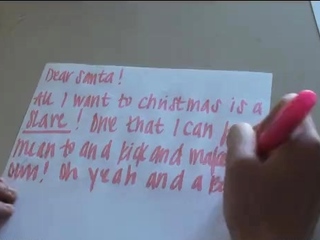 Dear Santa!
All I want to christmas is a
Slave! One that I can
mean to and kick and
own! Oh yeah and a